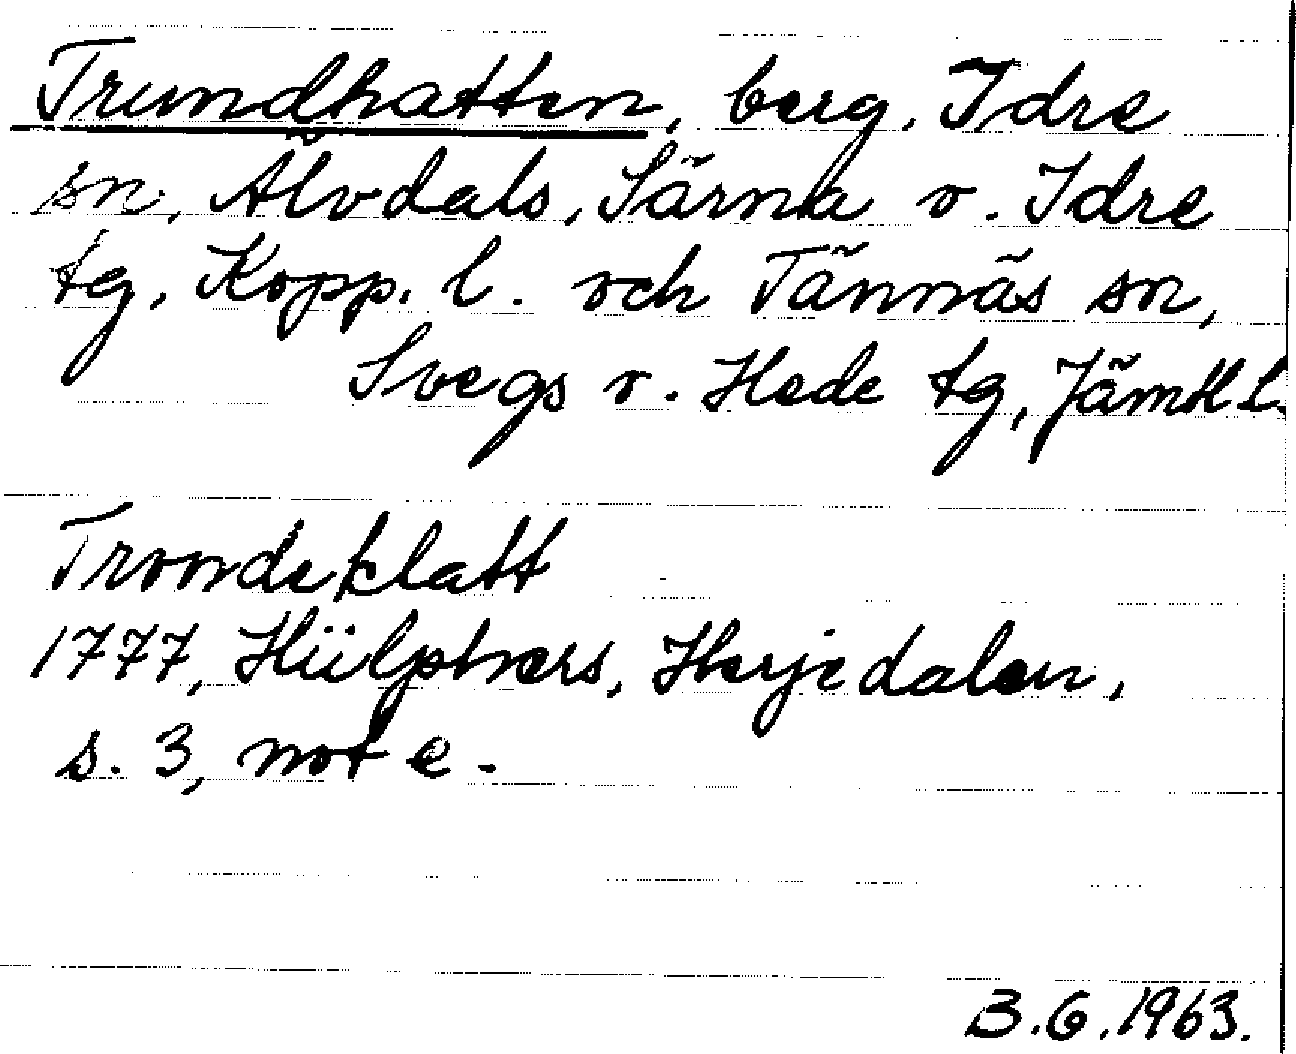 Trundhatten, berg, Idre
sn, Älvdals, Särna o. Idre
tg, Kopp. l. och Tännäs sn,
Svegs o. Hede tg, Jämtl l.
Trondeklatt
1777, Hülphers, Herjedalen,
s. 3, not e.
B.G. 1963.